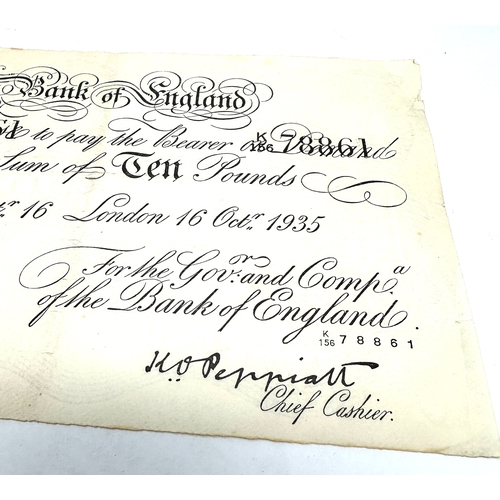 Bank of England
61 to pay the Bearer on Demand K/156 78861
Sum of Ten Pounds
16 London 16 Octr. 1935
For the Govr. and Compa.
of the Bank of England.
K/156 78861
K.O. Peppiatt
Chief Cashier.